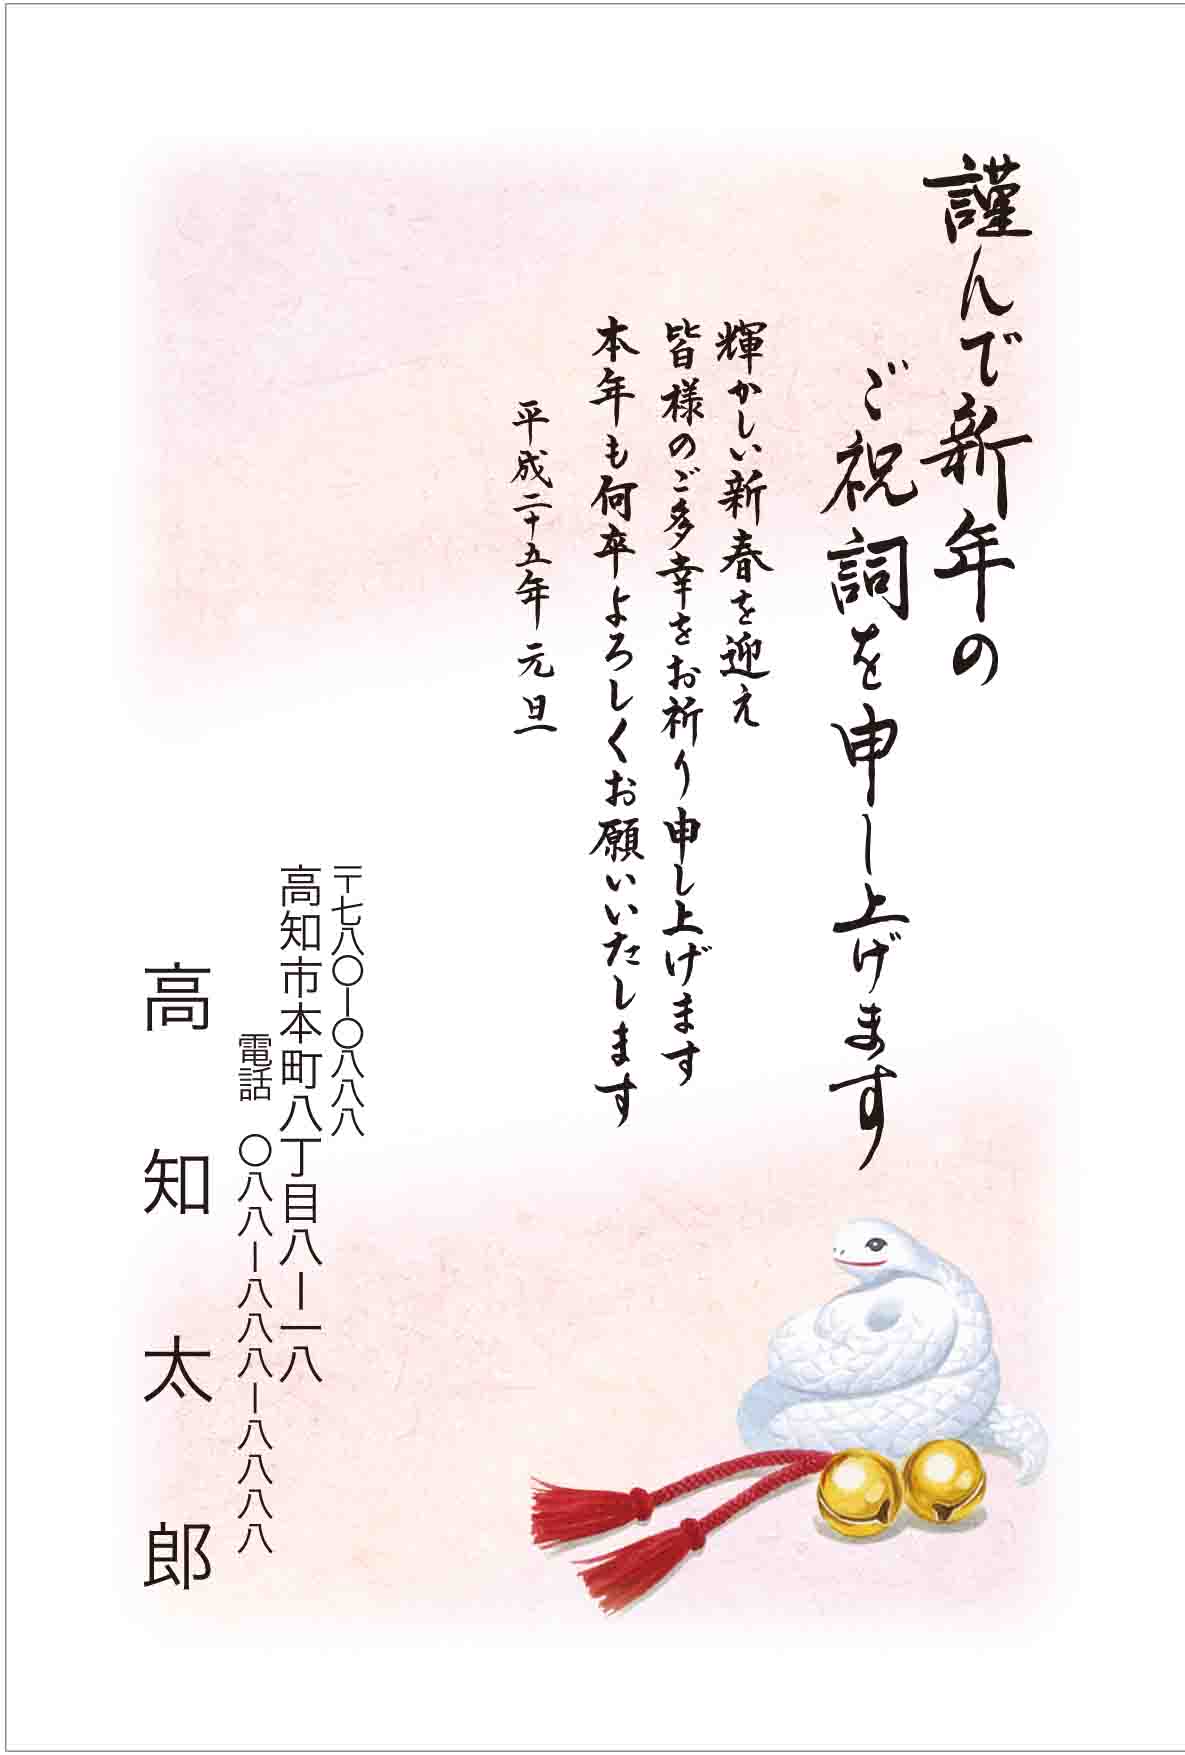 謹んで新年の
ご祝詞を申し上げます
輝かしい新春を迎え
皆様のご多幸をお祈り申し上げます
本年も何卒よろしくお願いいたします
平成二十五年 元旦
〒七八〇ー〇八八八
高知市本町八丁目八ー一八
電話 〇八八ー八八八ー八八八八
高知太郎